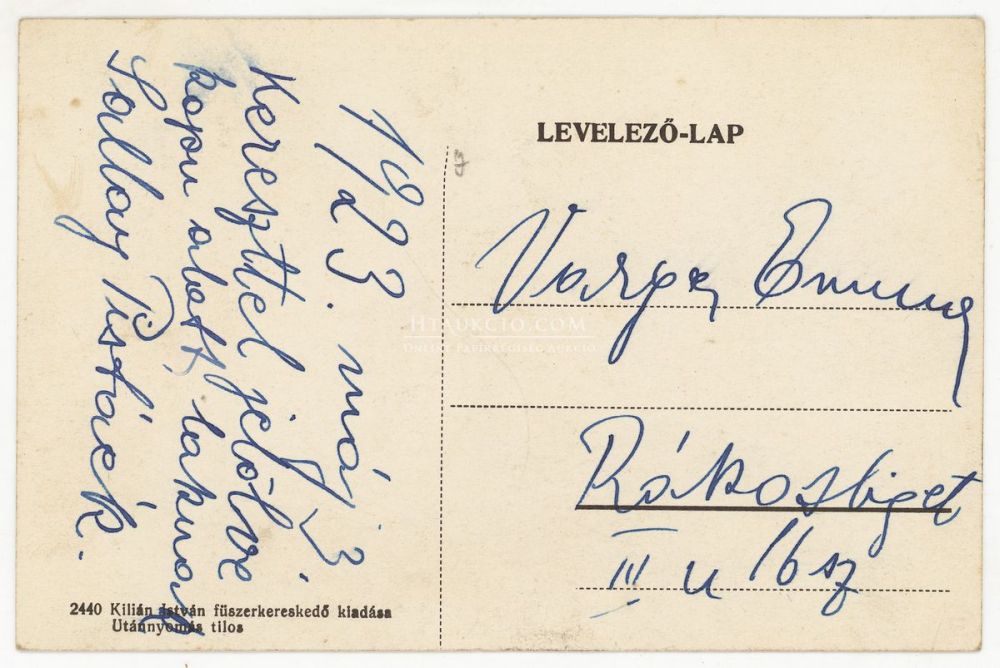 LEVELEZŐ-LAP
1923. máj 3
Kereszttel jelölve
kapu alatt laknak
Sallay Pistáék.
Varga Emma
Rákosliget
III u 16 sz
2440 Kilián István fűszerkereskedő kiadása
Utánnyomás tilos
HTAUKCIO.COM
ONLINE PAPÍRRÉGISÉG AUKCIÓ